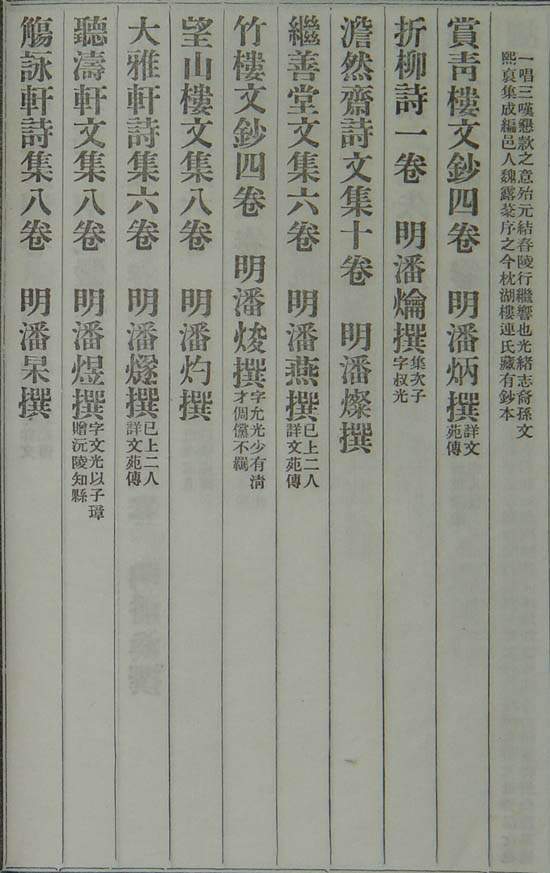 一唱三嘆懇款之意殆元結舂陵行繼響也光緒志裔孫文
熙裒集成編邑人魏露棻序之今枕湖樓連氏藏有鈔本
賞靑樓文鈔四卷　明潘炳撰詳文苑傳
折柳詩一卷　明潘爚撰集次子字叔光
澹然齋詩文集十卷　明潘燦撰
繼善堂文集六卷　明潘燕撰已上二人詳文苑傳
竹樓文鈔四卷　明潘焌撰字允光少有淸才倜儻不羈
望山樓文集八卷　明潘灼撰
大雅軒詩集六卷　明潘燧撰已上二人詳文苑傳
聽濤軒文集八卷　明潘煜撰字文光以子璋贈沅陵知縣
觴詠軒詩集八卷　明潘杲撰